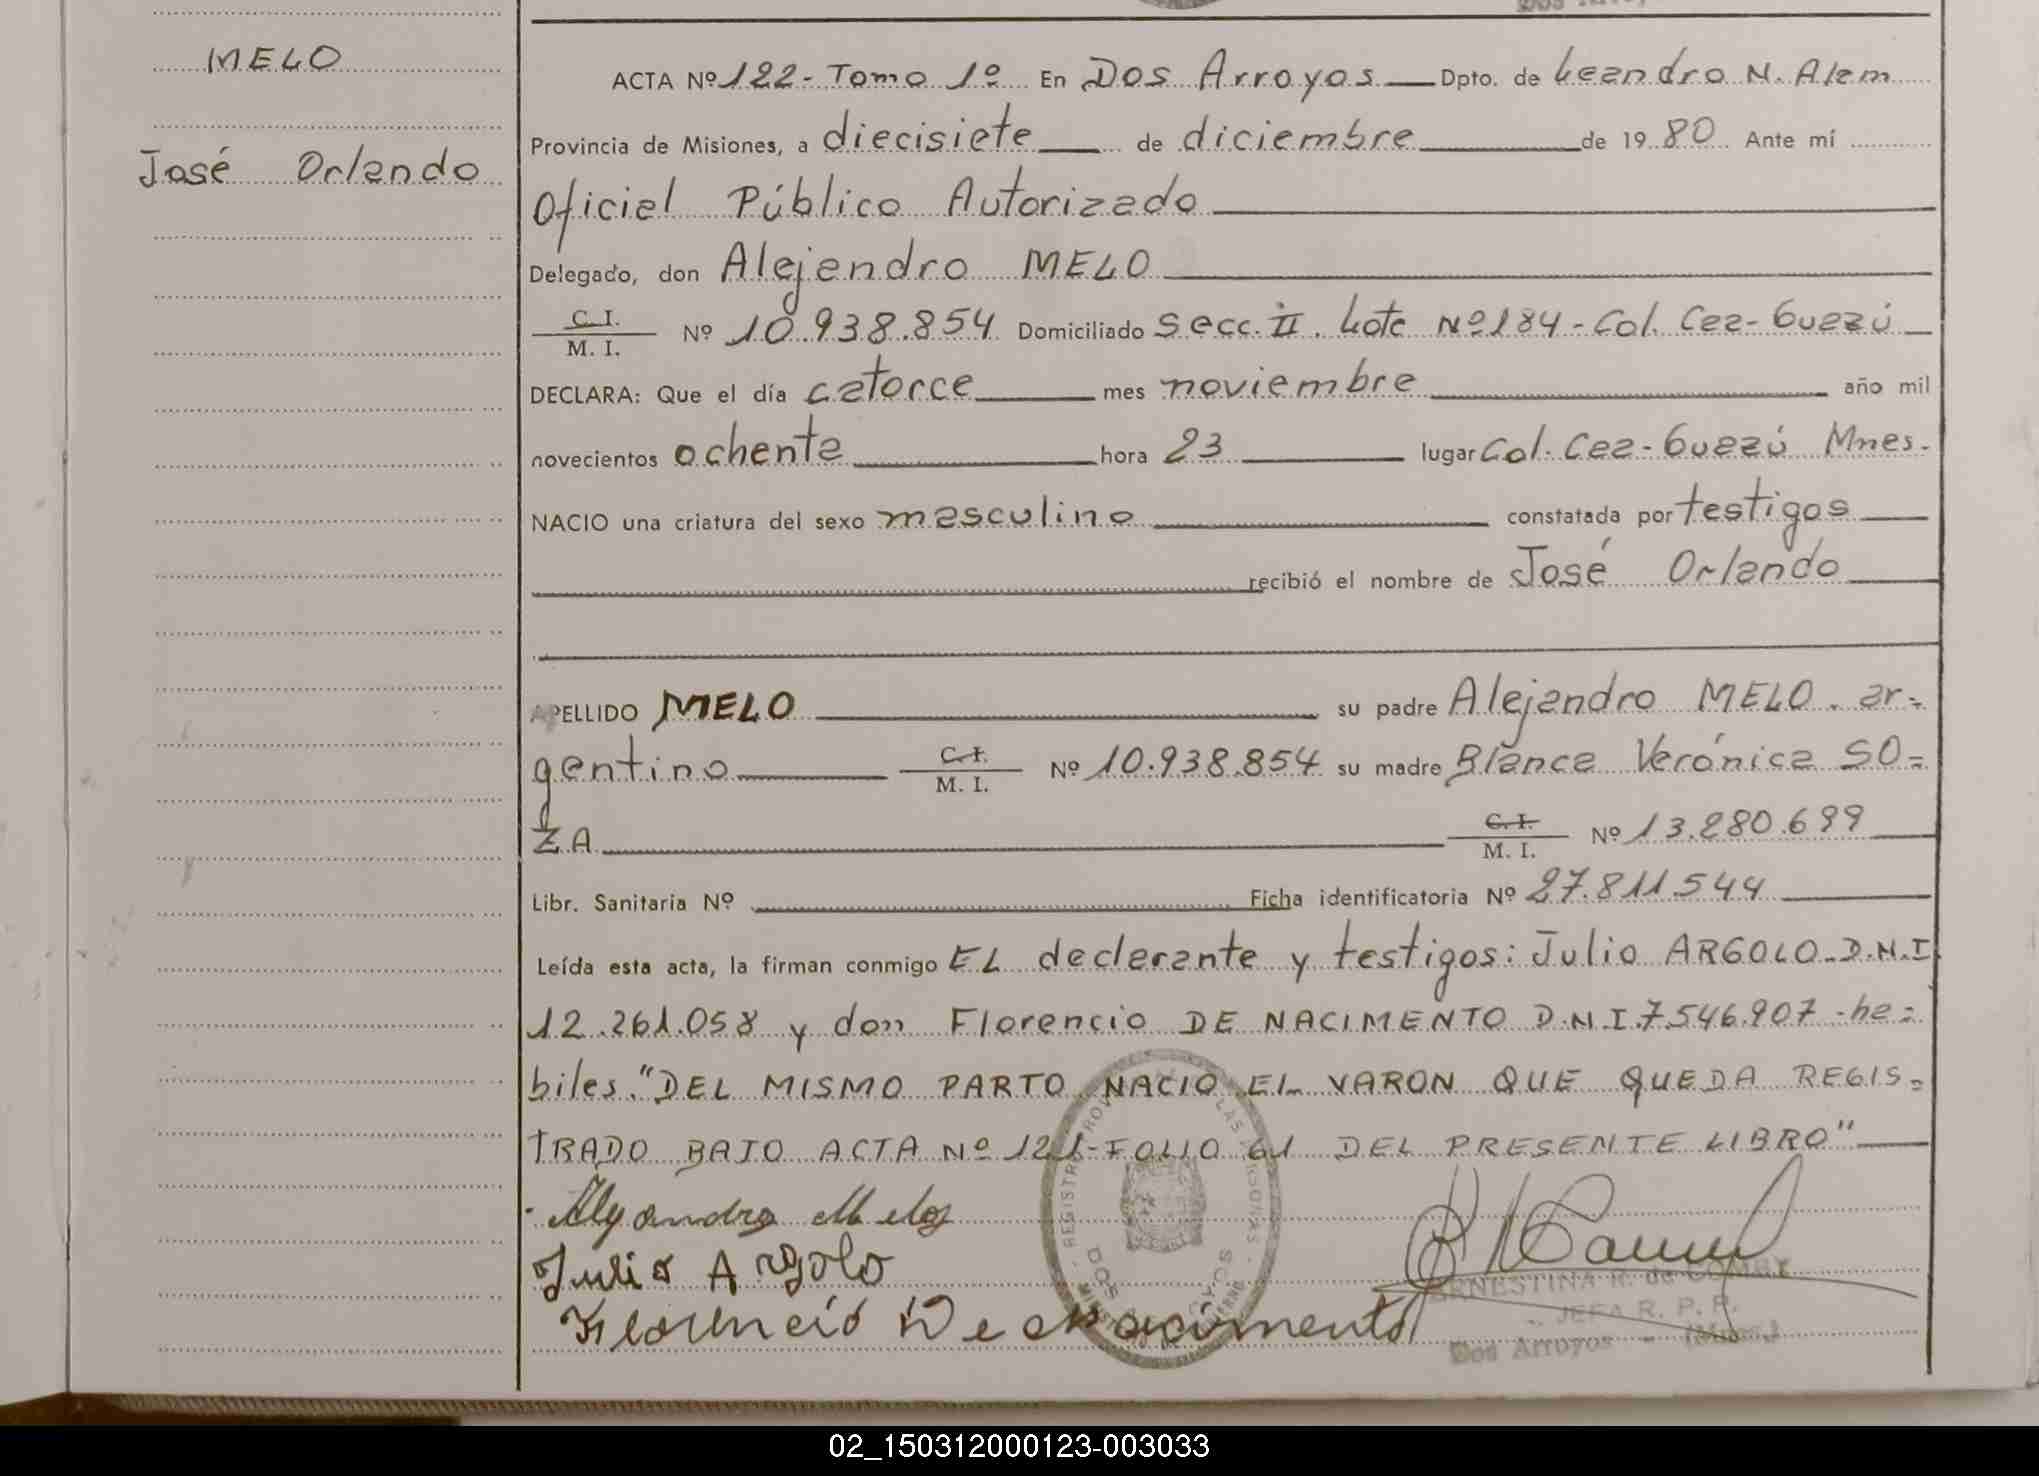 MELO
José Orlando
ACTA Nº 122- Tomo 1º En Dos Arroyos Dpto. de Leandro N. Alem
Provincia de Misiones, a diecisiete de diciembre de 19 80 Ante mí
Oficial Público Autorizado
Delegado, don Alejandro MELO
C. I.
M. I. Nº 10.938.854 Domiciliado Secc. II. Lote Nº 184 - Col. Caa-Guazú
DECLARA: Que el día catorce mes noviembre año mil
novecientos ochenta hora 23 lugar Col. Caa-Guazú Mnes.
NACIO una criatura del sexo masculino constatada por testigos
recibió el nombre de José Orlando
APELLIDO MELO su padre Alejandro MELO. ar=
gentino C. I. M. I. Nº 10.938.854 su madre Blanca Verónica SO=
ZA C. I. M. I. Nº 13.280.699
Libr. Sanitaria Nº Ficha identificatoria Nº 27.811.544
Leída esta acta, la firman conmigo EL declarante y testigos: Julio ARGOLO. D.N.I
12.261.058 y don Florencio DE NACIMENTO D.N.I. 7.546.907 -ha=
biles. "DEL MISMO PARTO NACIO EL VARON QUE QUEDA REGIS=
TRADO BAJO ACTA Nº 121-FOLIO 61 DEL PRESENTE LIBRO"
Alejandro Melo
Julio Argolo
Florencio De Nacimento
ERNESTINA R. de COMBY
JEFA R. P. P.
Dos Arroyos - (Mnes.)
02_150312000123-003033